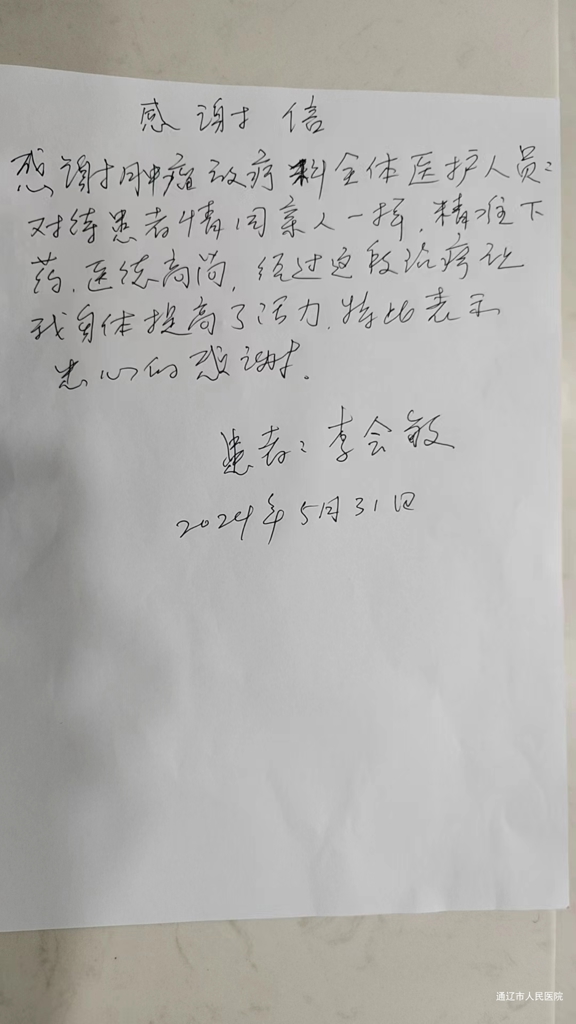 感谢信
感谢肿瘤放疗科全体医护人员:
对待患者情同亲人一样,精准下
药,医德高尚,经过迫段治疗让
我身体提高了活力,特此表示
忠心的感谢.
患者:李会敏
2024年5月31日
通辽市人民医院